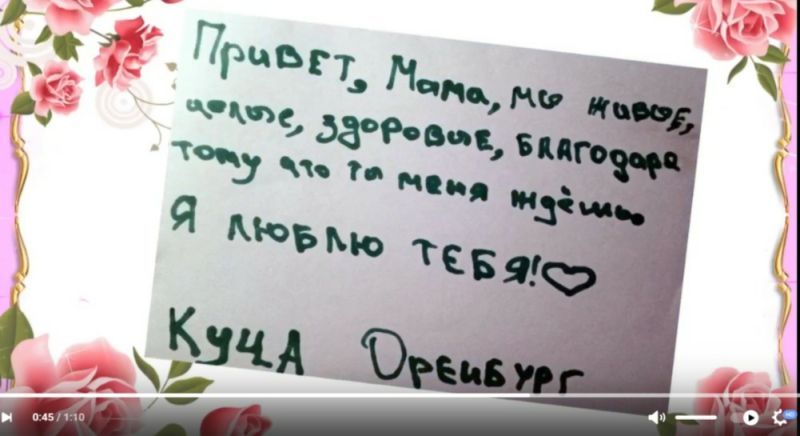 Привет, Мама, мы живые,
целые, здоровые, благодаря
тому что ты меня ждёшь
Я люблю тебя!
Куца Оренбург
0:45 / 1:10
HD